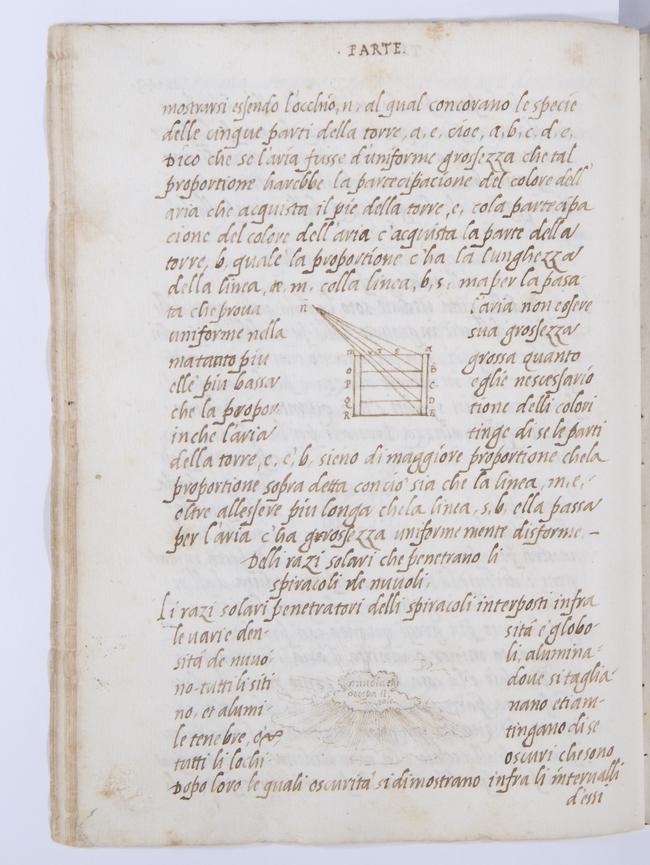 · PARTE ·
mostrarsi essendo l'occhio, n, al qual concorano le specie
delle cinque parti della torre, a, e, cioe, a, b, c, d, e,
Dico che se l'aria fusse d'uniforme grossezza che tal
proportione harebbe la partecipacione del colore dell'
aria che acquista il pie della torre, e, cola partecipa
cione del colore dell'aria c'acquista la parte della
torre, b, quale la proportione c'ha la lunghezza
della linea, m, colla linea, b, s, ma per la pasa
ta che prova l'aria non essere
uniforme nella sua grossezza
ma tanto piu grossa quanto
elle piu bassa eglie nescessario
che la propor tione delli colori
in che l'aria tinge di se le parti
della torre, e, e, b, sieno di maggiore proportione chela
proportione sopra detta concio sia che la linea, m, e,
oltre allessere piu longa chela linea, s, b, ella passa
per l'aria c'ha grossezza uniforme mente disforme. –
n
A
B
C
D
E
P
Q
R
Delli razi solari che penetrano li
spiracoli de nuvoli.
Li razi solari penetratori delli spiracoli interposti infra
le varie den- sitá e globo-
sitá de nuvo- li, alumina-
no tutti li siti dove si taglia-
no, et alumi- nano etiam-
le tenebre, tingano di se
tutti li lochi oscuri che sono
Dopo loro le quali oscuritá si dimostrano infra li intervalli
d'essi